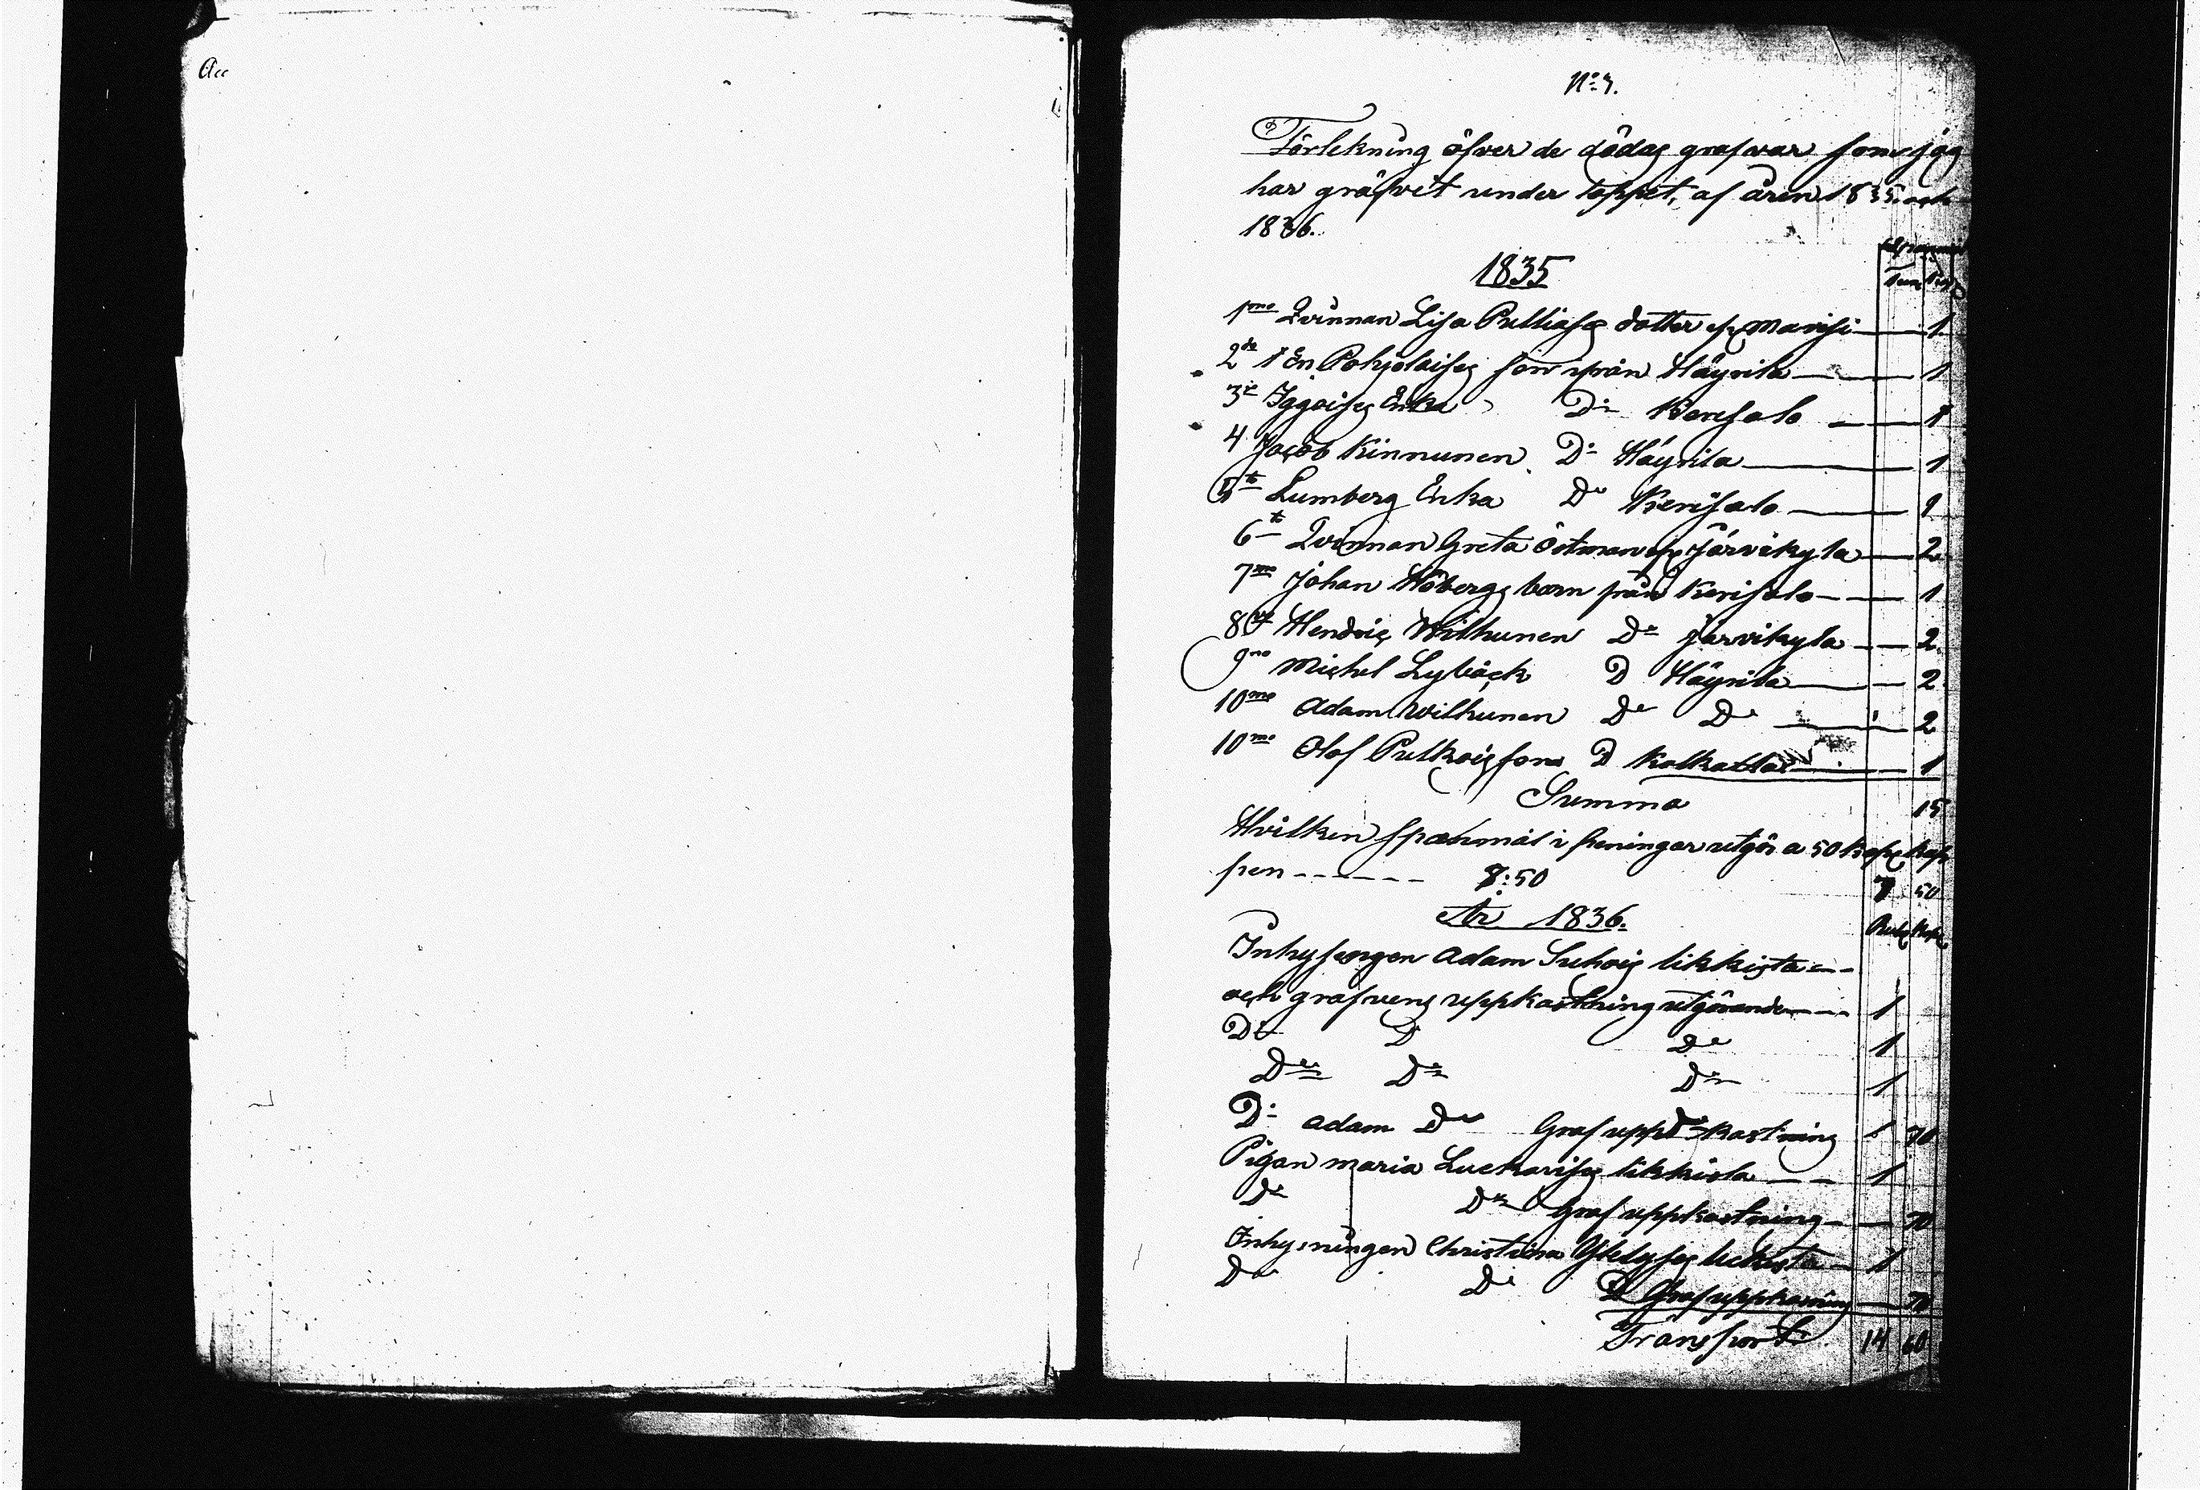 No 7.
Förtekning öfver de dödas grafvar som jag
har gräfvit under loppet, af åren 1835 och
1836.
Spanmål
1835
1mo Qvinnan Lisa Pulliass dotter fr Mavisi — 1
2do 1 En Pohjolaises son ifrån Häyrilä — 1
3ie Iggoises Enka Do Kerisalo — 1
4 Jacob Kinnunen Do Häyrilä — 1
5to Lumberg Enka Do Kerisalo — 1
6to Qvinnan Greta Östman fr Järvikylä — 2
7mo Johan Höbergs barn från Kerisalo — 1
8vo Hendric Wilhunen Do Järvikylä — 2
9no Michel Lybäck D Häyrilä — 2
10mo Adam Wilhunen Do Do — 2
10mo Olof Pulkois sons D — 1
Summa 15
Hvilken spanmål i peningar utgör a 50 Kop Kap
pen ------ 7:50 7 50
År 1836. Rub Kop
Inhysesgen Adam Suhois likkista --
och grafvens uppkastning utgörande --- 1
Do D Do 1
Do Do Do 1
Do Adam Do Graf upp Do kastning 1 70
Pigan Maria Luckarises likkista -- 1
Do Do Graf uppkastning -- 70
Inhysningen Christina likkista 1
Do Do D Graf uppkastning 70
Transport 14 60